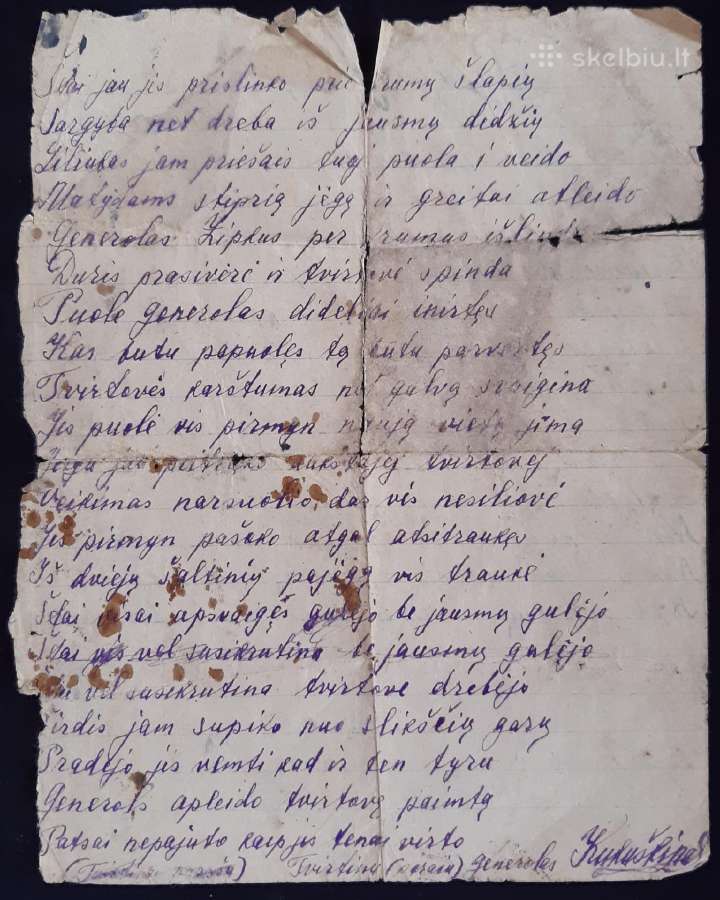 skelbiu.lt
Štai jau jis prislinko prie krumų šlapių
Sargyba net dreba iš jausmų didžių
jam priešais tuoj puola į veido
stiprią jėgą ir greitai atleido
Generolas Zipkus per krumus išlindo
Duris prasivėrė ir tvirtovė spinda
Puolė generolas dideliai inirtęs
Kas butu papuolęs tą butu parvertęs
Tvirtovės karštumas net galvą svaigina
Jis puolė vis pirmyn naują vietą jima
Jeigu jau tvirtovėj
Veikimas narsuolio dar vis nesiliovė
Jis pirmyn pašoko atgal atsitraukęs
Iš dviejų šaltinių pajėgą vis traukė
Štai visai apsvaigęs gulėjo be jausmų gulėjo
Štai vis vėl susikrutina be jausmų gulėjo
vėl susikrutina tvirtovė drebėjo
Širdis jam supiko nuo slikščių garų
Pradėjo jis vemti kad ir ten tyru
Generols apleido tvirtovę paimtą
Patsai nepajuto kaip jis tenai virto
Tvirtinu generolas Kukuškinas